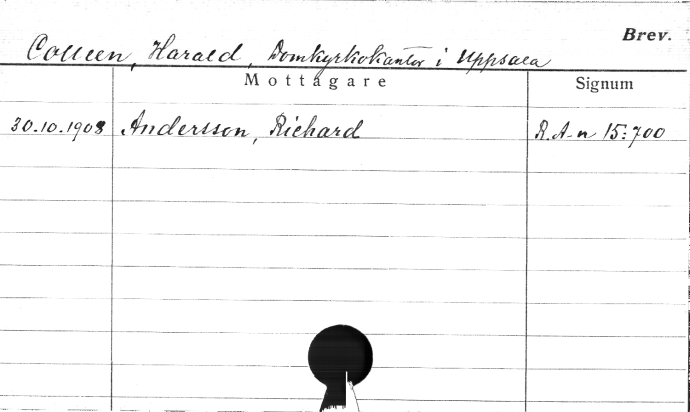 Brev.
Colleen, Harald, Domkyrkokantor i Uppsala
Mottagare Signum
30.10.1908 Andersson, Richard R.A-n 15:700